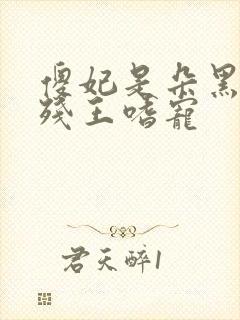 傻妃是朵黑
残王嗜宠
君天醉1